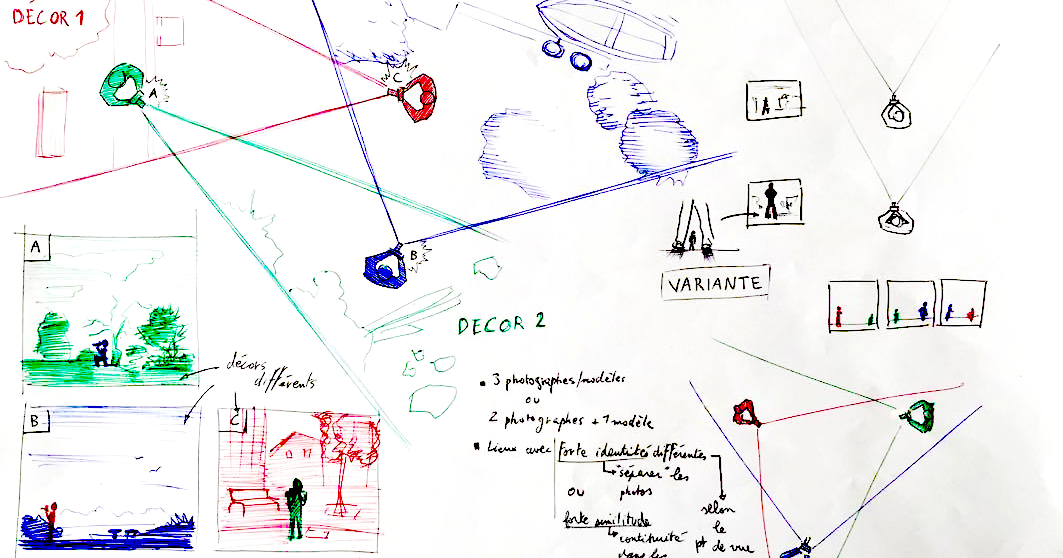 DÉCOR 1
A
C
B
A
VARIANTE
DECOR 2
décors
différents
B
C
• 3 photographes/modèles
ou
2 photographes + 1 modèle
• Lieux avec forte identités différentes
"séparer" les
photos
ou
forte similitude
continuité
dans les
selon
le
pt de vue